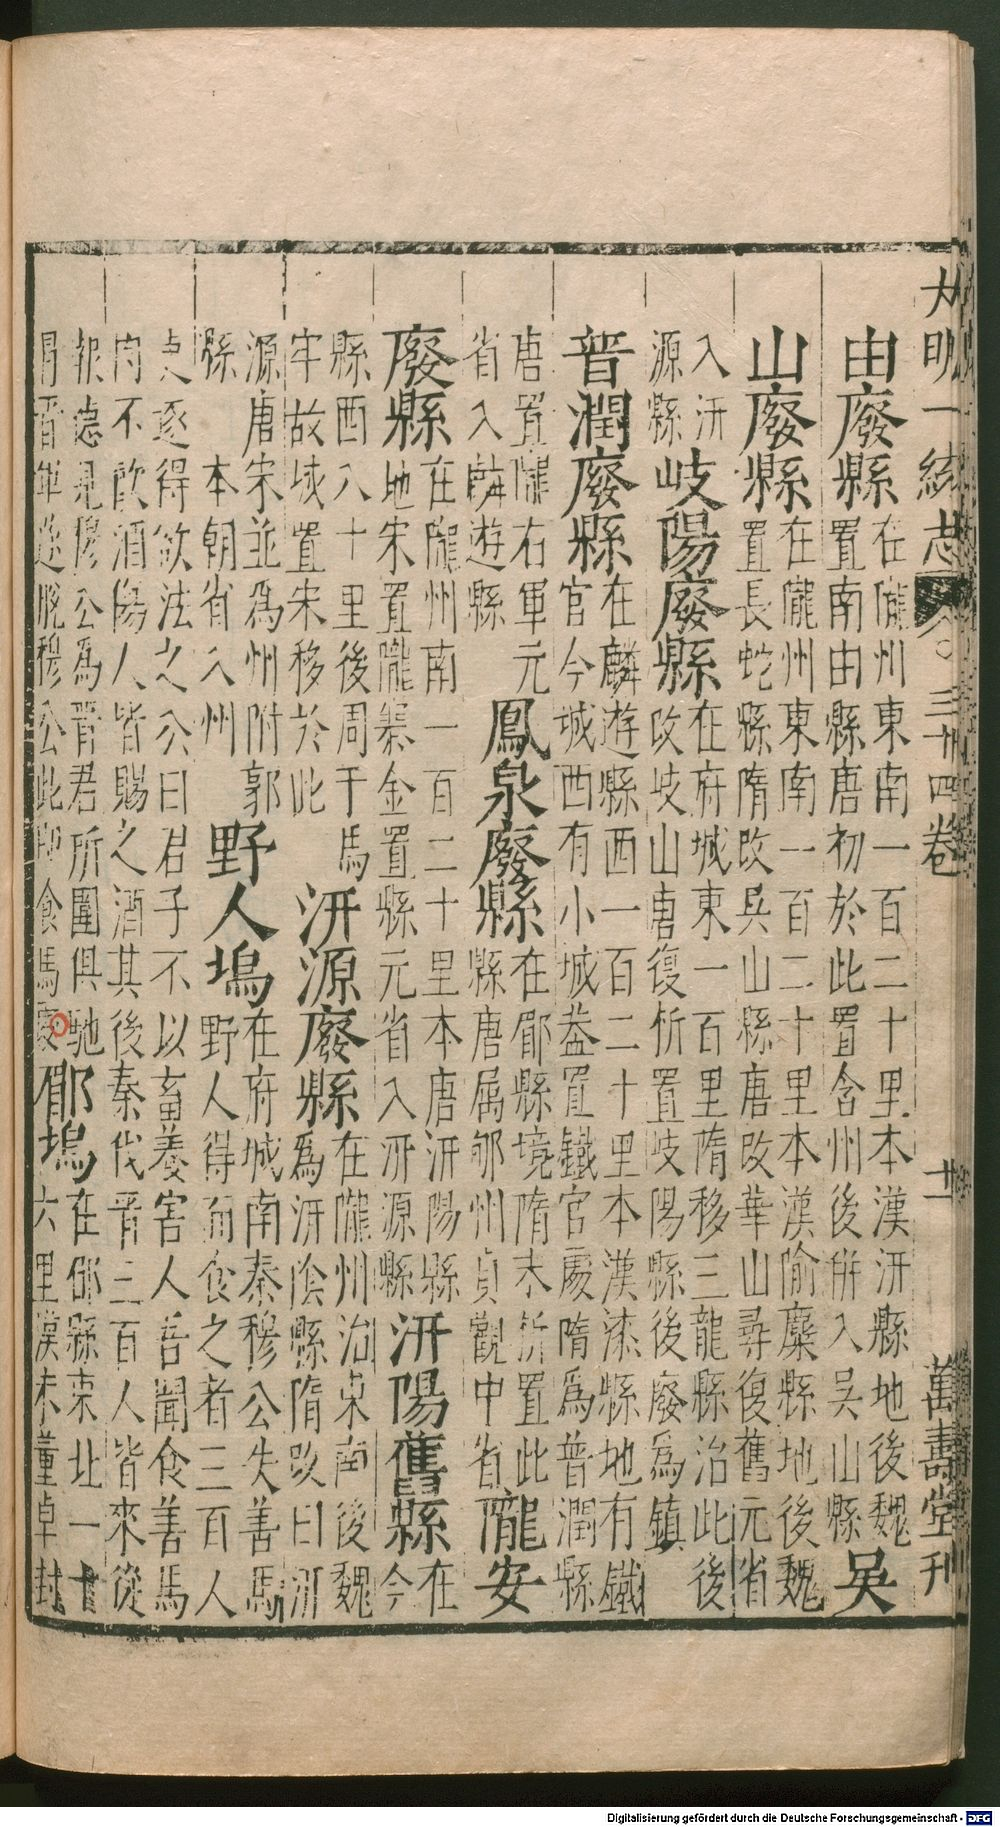 大明一統志 三十四卷 廿一 萬壽堂刊
由廢縣
在隴州東南一百二十里本漢汧縣地後魏
置南由縣唐初於此置含州後併入吳山縣
吳
山廢縣
在隴州東南一百二十里本漢隃麋縣地後魏
置長蛇縣隋改吳山縣唐改華山尋復舊元省
入汧
源縣
岐陽廢縣
在府城東一百里隋移三龍縣治此後
改岐山唐復析置岐陽縣後廢為鎮
普潤廢縣
在麟遊縣西一百二十里本漢漆縣地有鐵
官今城西有小城蓋置鐵官處隋為普潤縣
唐置隴右軍元
省入麟遊縣
鳳泉廢縣
在郿縣境隋末析置此
縣唐属郇州貞觀中省
隴安
廢縣
在隴州南一百二十里本唐汧陽縣
地宋置隴寨金置縣元省入汧源縣
汧陽舊縣
在今
縣西八十里後周于馬
牢故城置宋移於此
汧源廢縣
在隴州治東南後魏
為汧陰縣隋改曰汧
源唐宋並為州附郭
縣 本朝省入州
野人塢
在府城南秦穆公失善馬
野人得而食之者三百人
吏逐得欲法之公曰君子不以畜養害人吾聞食善馬
肉不飲酒傷人皆賜之酒其後秦伐晋三百人皆來從
報德見穆公為晋君所圍俱馳
冒晋軍遂脫穆公此即食馬處
郿塢
在郿縣東北一十
六里漢末董卓封
Digitalisierung gefördert durch die Deutsche Forschungsgemeinschaft - DFG